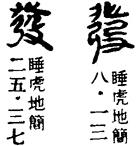 睡虎地簡
八·一三
發
睡虎地簡
二五·三七